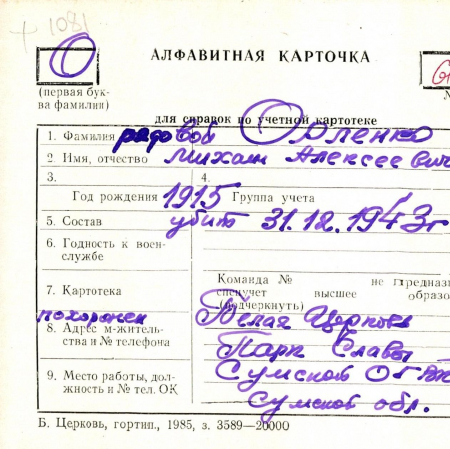 + 1081
О
АЛФАВИТНАЯ КАРТОЧКА
(первая бук-
ва фамилии)
для справок по учетной картотеке
1. Фамилия рядовой Орленко
2. Имя, отчество Михаил Алексеевич
3. 4.
Год рождения 1915 Группа учета
5. Состав убит 31.12.1943г
6. Годность к воен-
службе
Команда № не предназ
7. Картотека спецучет высшее образо
(подчеркнуть)
похоронен Белая Церковь
8. Адрес м-житель-
ства и № телефона
Парк Славы
9. Место работы, дол-
жность и № тел. ОК
Сумской
Сумской обл.
Б. Церковь, гортип., 1985, з. 3589—20000